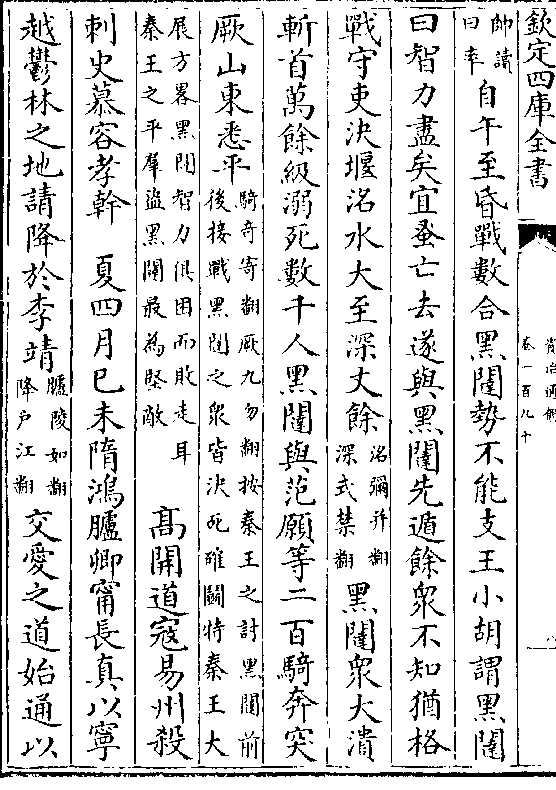 欽定四庫全書
資治通鑑
卷一百九十
八
帥讀曰率自午至昏戰數合黑闥勢不能支王小胡謂黑闥
曰智力盡矣宜蚤亡去遂與黑闥先遁餘衆不知猶格
戰守吏決堰洺水大至深丈餘洺彌并翻深式禁翻黑闥衆大潰
斬首萬餘級溺死數千人黑闥與范願等二百騎奔突
厥山東悉平騎奇寄翻厥九勿翻按秦王之討黑闥前後接戰黑闥之衆皆決死確鬬特秦王大
展方畧黑闥智力俱困而敗走耳秦王之平羣盜黑闥最為堅敵 高開道寇易州殺
刺史慕容孝幹 夏四月己未隋鴻臚卿甯長真以寧
越鬱林之地請降於李靖臚陵如翻降戶江翻交愛之道始通以